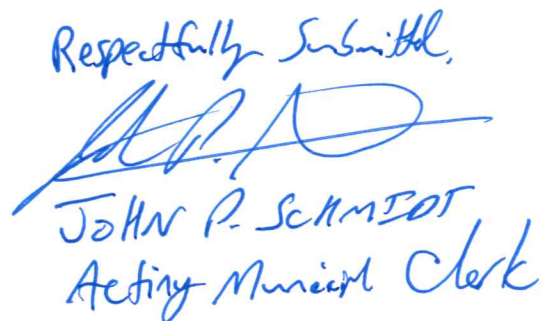 Respectfully Submitted,
JOHN P. SCHMIDT
Acting Municipal Clerk